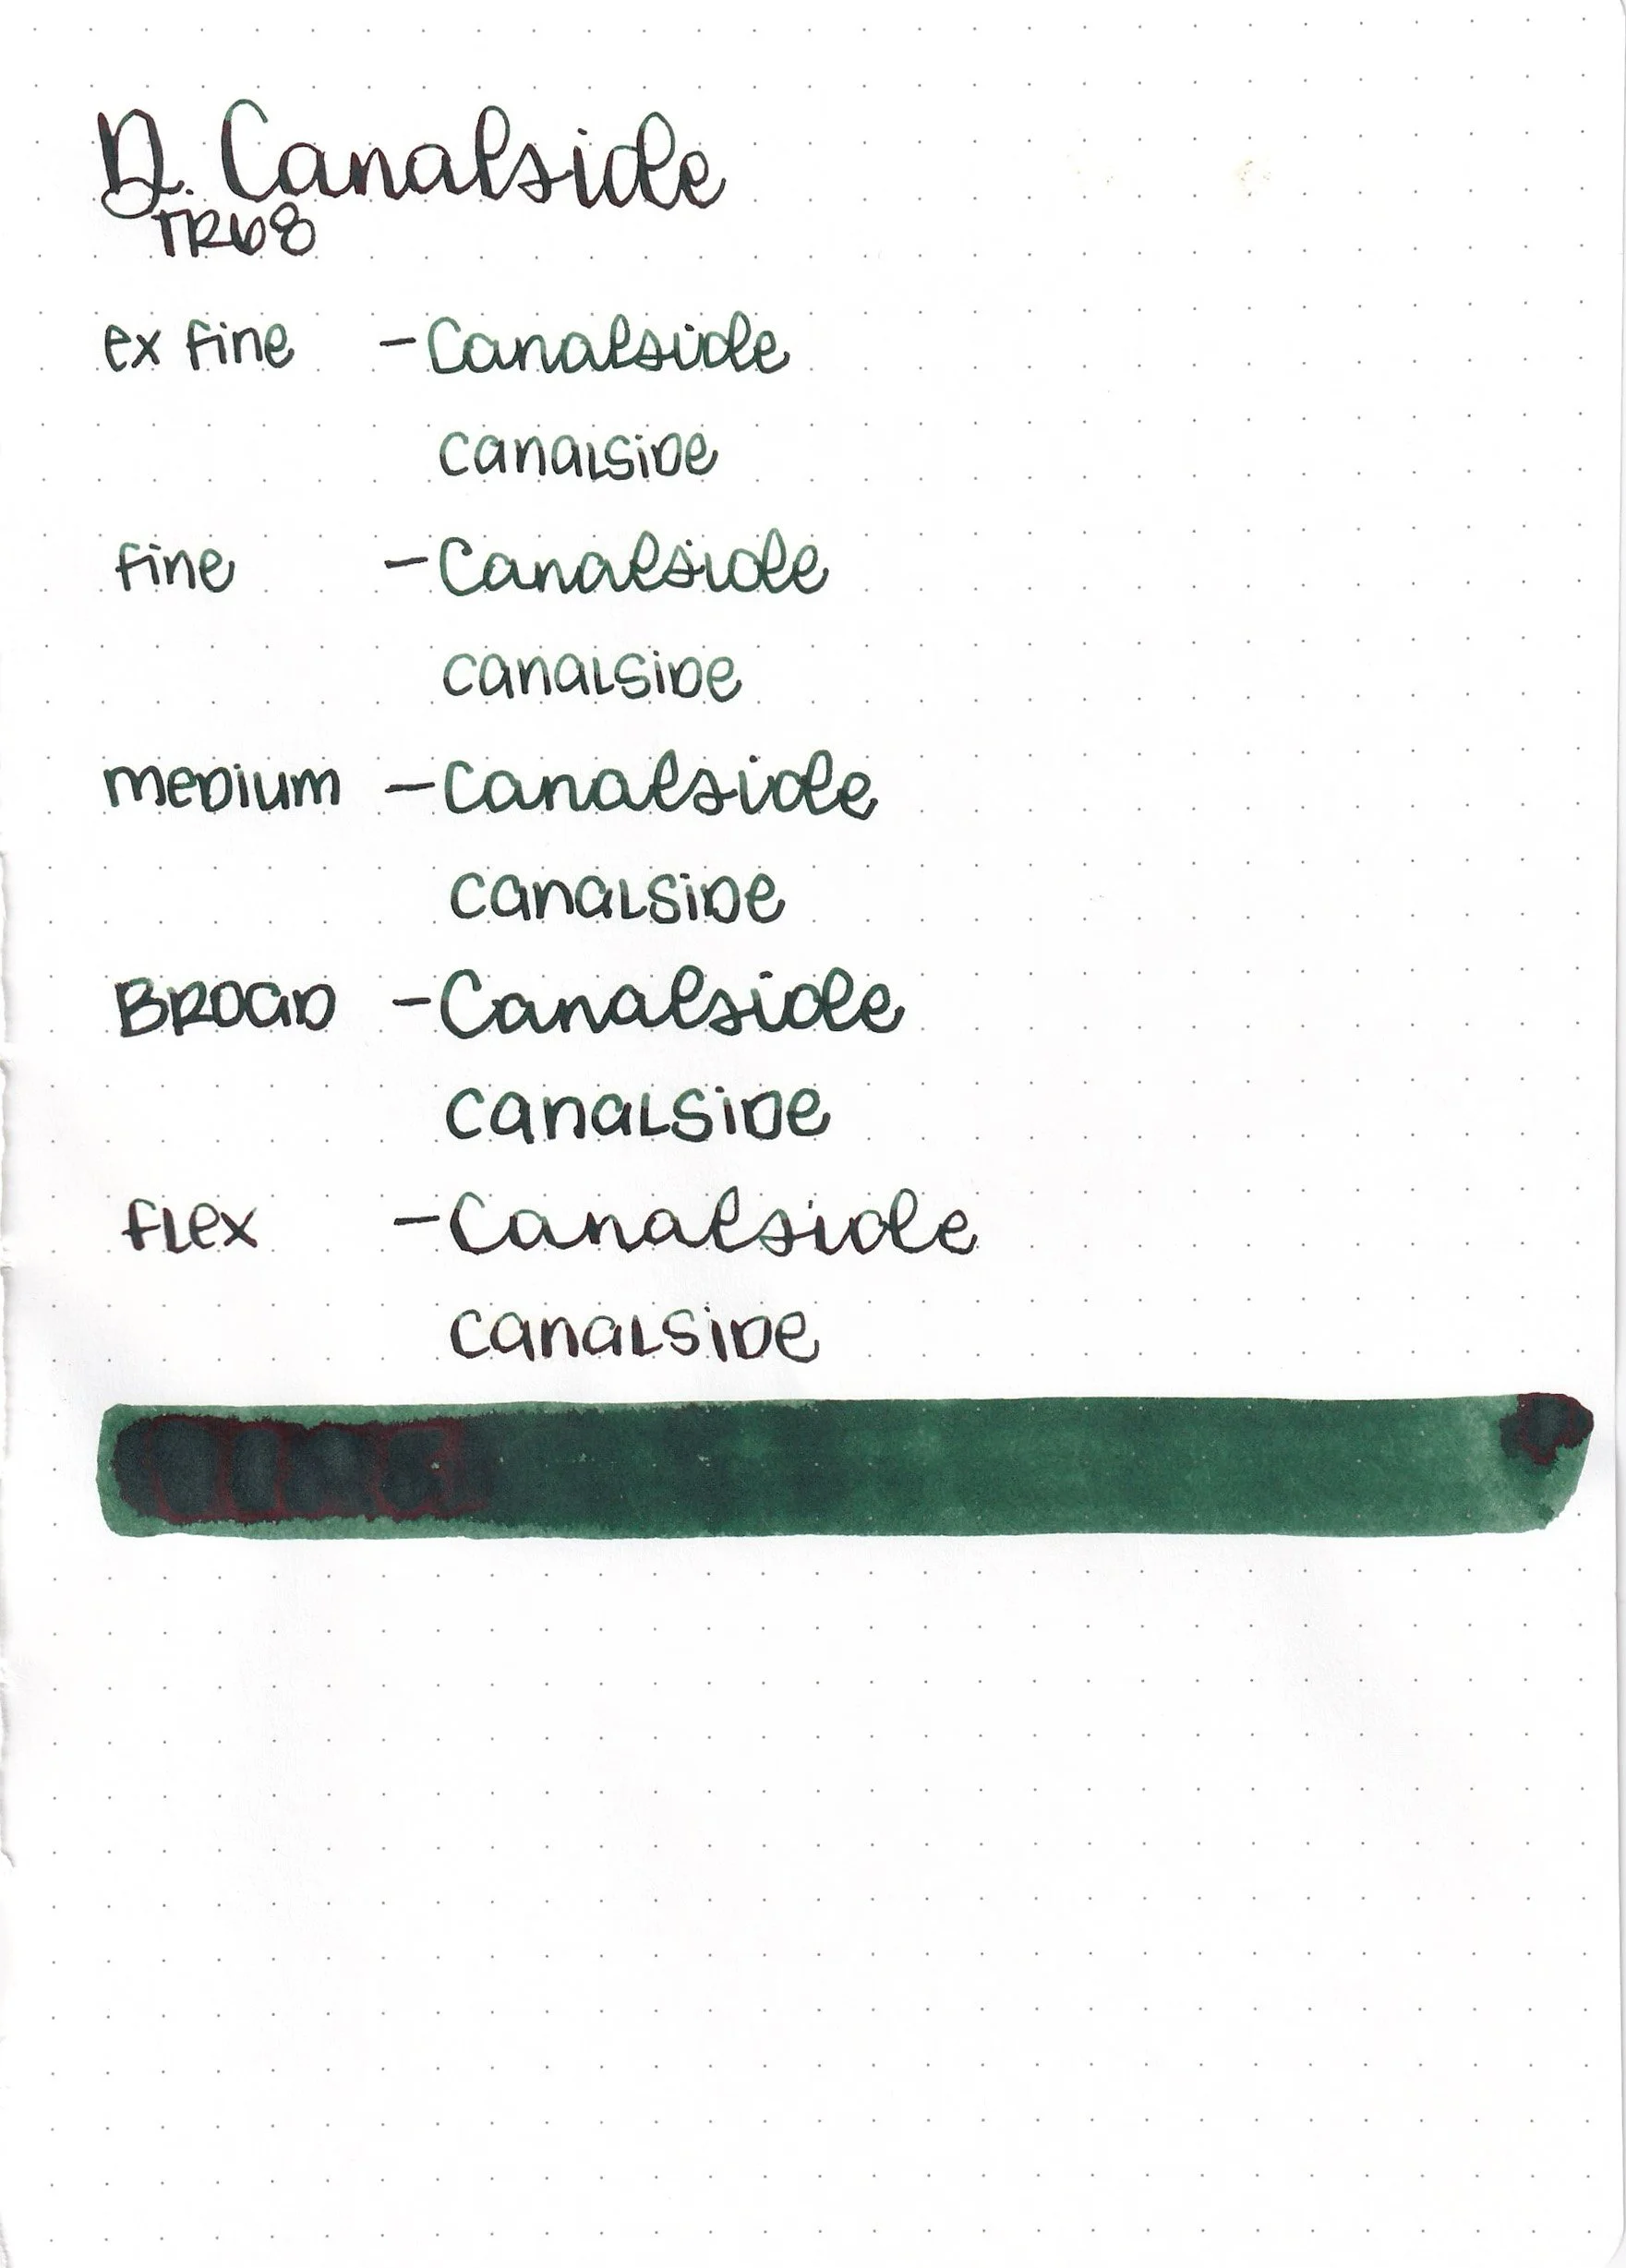 D. Canalside
TR68
ex fine - Canalside
canalside
fine - Canalside
canalside
medium - Canalside
canalside
Broad - Canalside
canalside
flex - Canalside
canalside